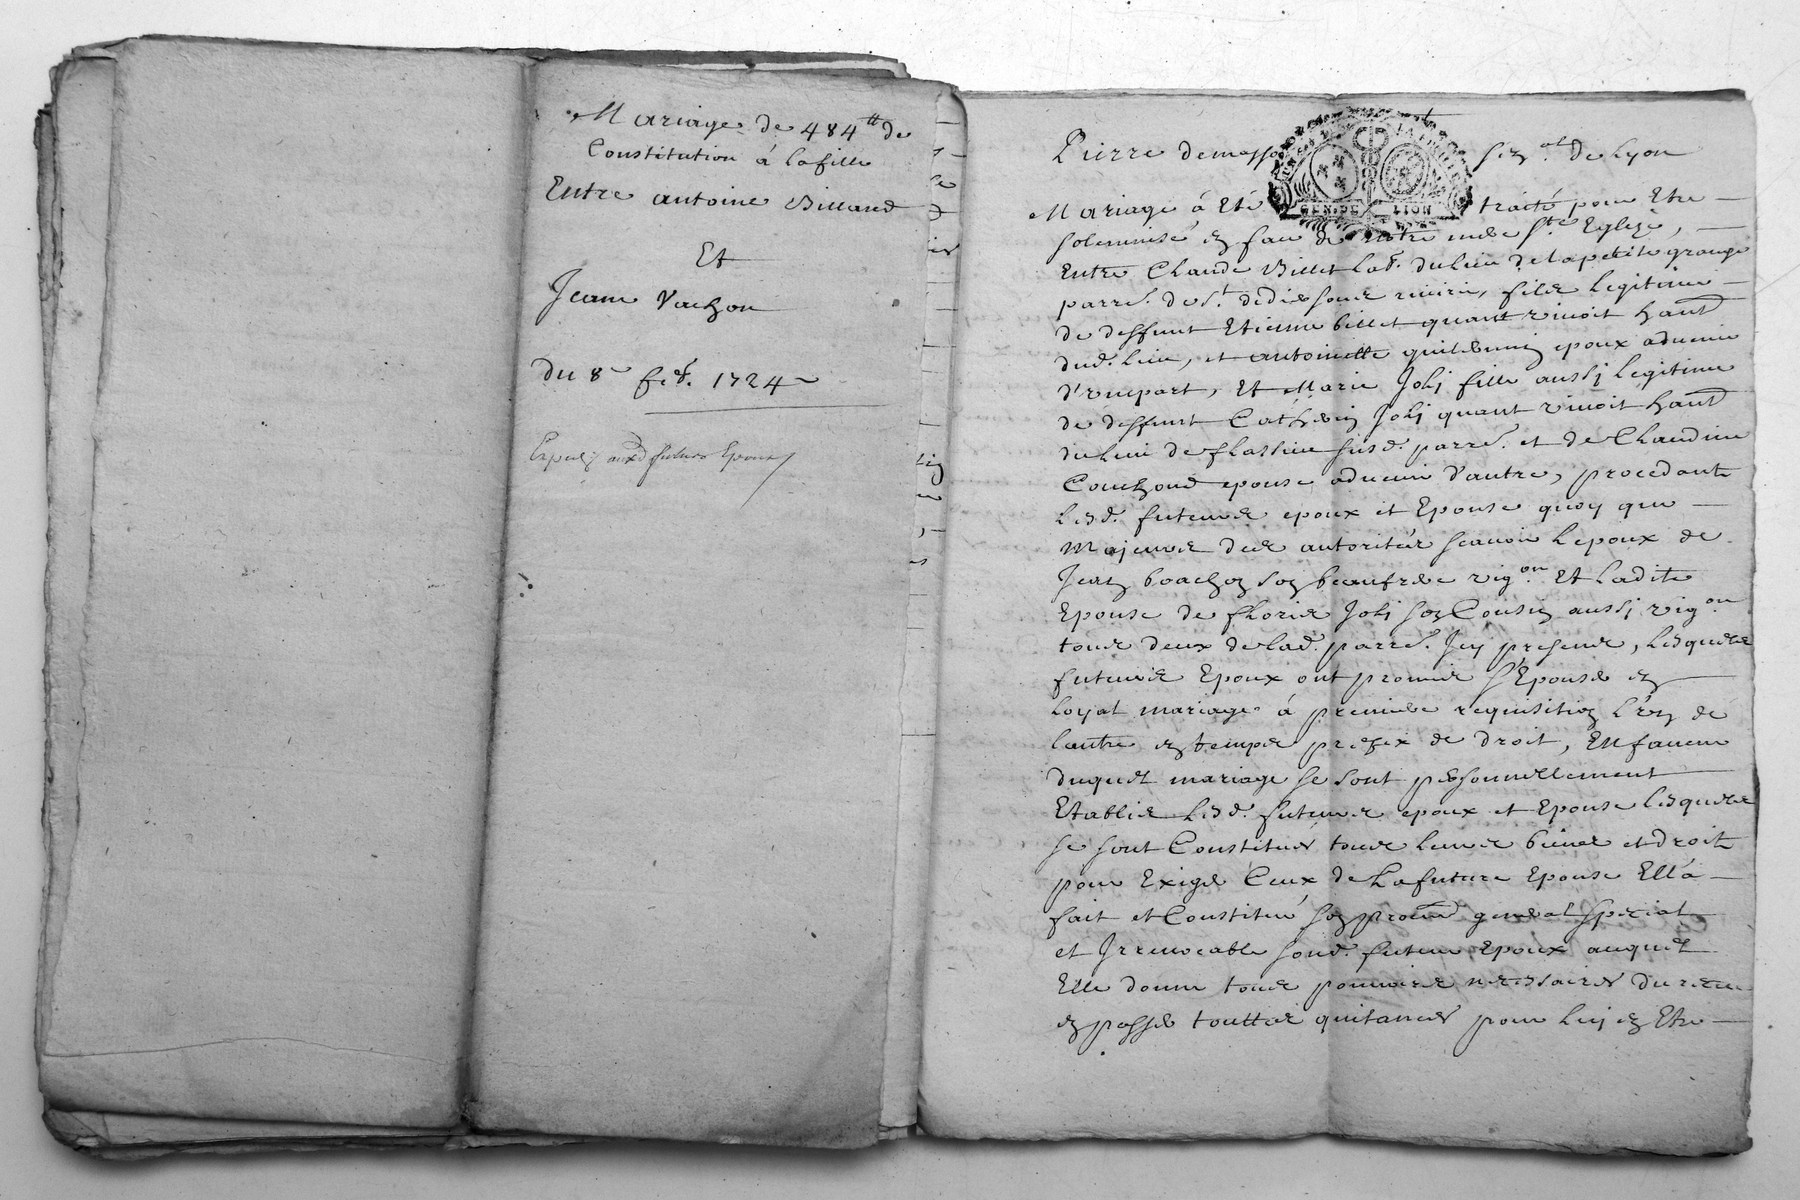 Mariage de 484 tt de
Constitution á la fille
Entre antoine Billand
Et
Jeanne Vachon
du 8e feb. 1724
Expedié auxd futurs Epoux
Pierre demasso senal de Lyon
GEN. DE LION
Mariage á Eté traité pour Etre
solemnisé en face de notre mere Ste Eglize,
Entre Claude Billet lab. du lieu de la petite grange
parre. de St. didier sous riverie, fils legitime
de deffunt Etienne billet quant vivoit habt
dud. lieu, et antoinette epoux advenir
d'vne part, Et Marie Joly fille aussy legitime
de deffunt Catherin Joly quant vivoit habt
du lieu de susd. parre. et de Claudine
Couchoud epouse advenir d'autre, procedants
lesd. futeurs epoux et Epouse quoy que
Majeurs des autorités scavoir Lepoux de
Jean boachon son beaufrere vigon Et ladite
Epouse de fleurie Joly son Cousin aussy vigon
tous deux de lad. parre. Icy presens, lesquels
futeurs Epoux ont promis s'Epouser en
loyal mariage á premiere requisition L'vn de
lautre en temps prefix de droit, En faveur
duquel mariage se sont personnellement
Etablis lesd. futeurs epoux et Epouse lesquels
se sont Constitués tous leurs biens et droits
pour Exiger Ceux de La future Epouse Ell'a
fait et Constitué son procur general special
et Irrevocable sond. futeur Epoux auquel
Elle donne tous pouvoirs necessaires du receu
en passer touttes quitances pour luy en Etre